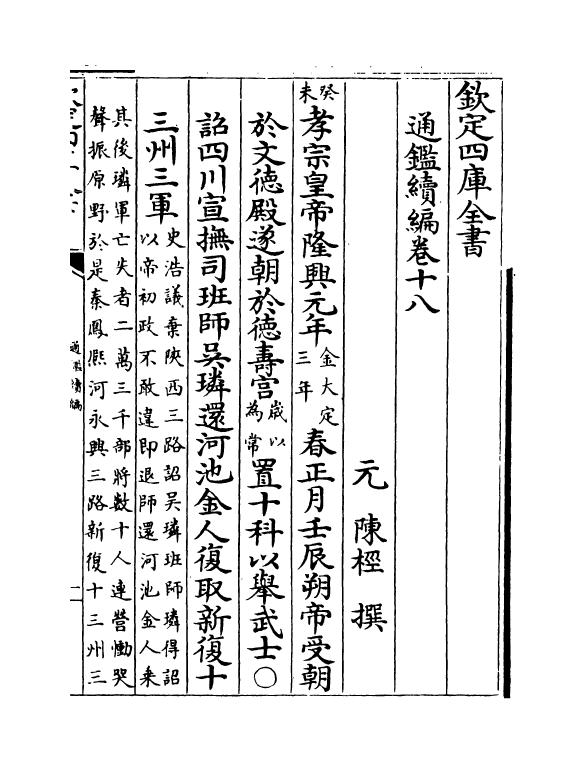 欽定四庫全書
通鑑續編卷十八
元 陳桱 撰
癸未孝宗皇帝隆興元年金大定三年春正月壬辰朔帝受朝
於文德殿遂朝於德壽宫歲以為常置十科以舉武士○
詔四川宣撫司班師吳璘還河池金人復取新復十
三州三軍史浩議棄陜西三路詔吳璘班師璘得詔以帝初政不敢違即退師還河池金人乘
其後璘軍亡失者二萬三千部將數十人連營慟哭聲振原野於是秦鳳熈河永興三路新復十三州三
通鑑續編